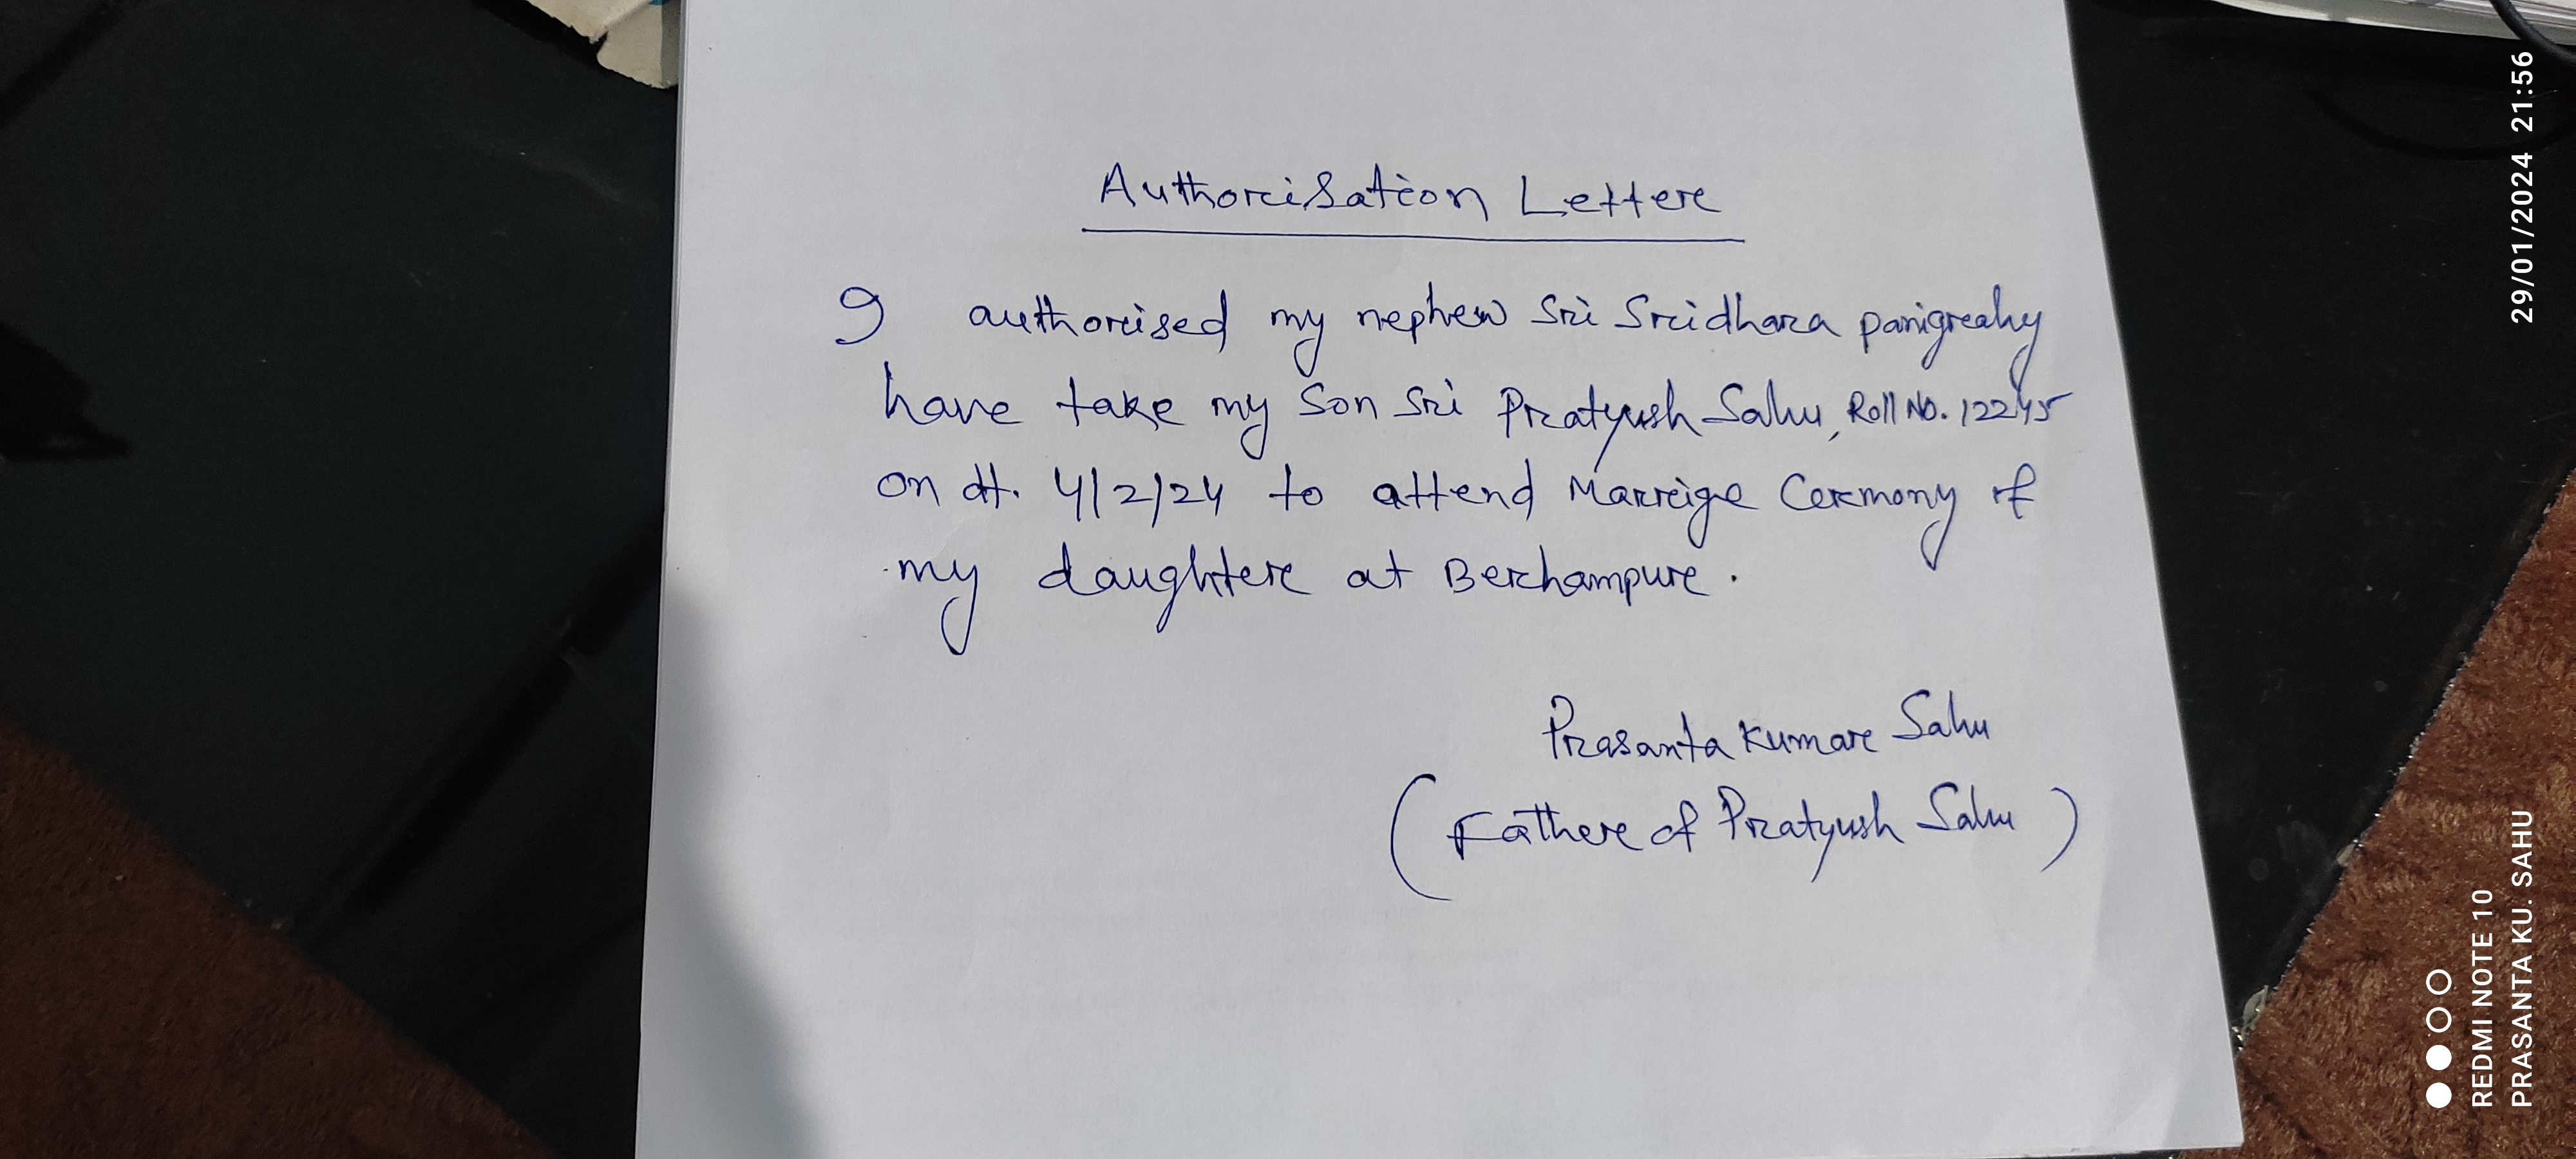 Authorisation Letter
I authorised my nephew Sri Sridhara panigrahy
have take my son Sri Pratyush Sahu, Roll No. 12245
on dt. 4/2/24 to attend Marrige Cermony of
my daughter at Berhampur.
Prasanta Kumar Sahu
(Father of Pratyush Sahu)
29/01/2024 21:56
REDMI NOTE 10
PRASANTA KU. SAHU